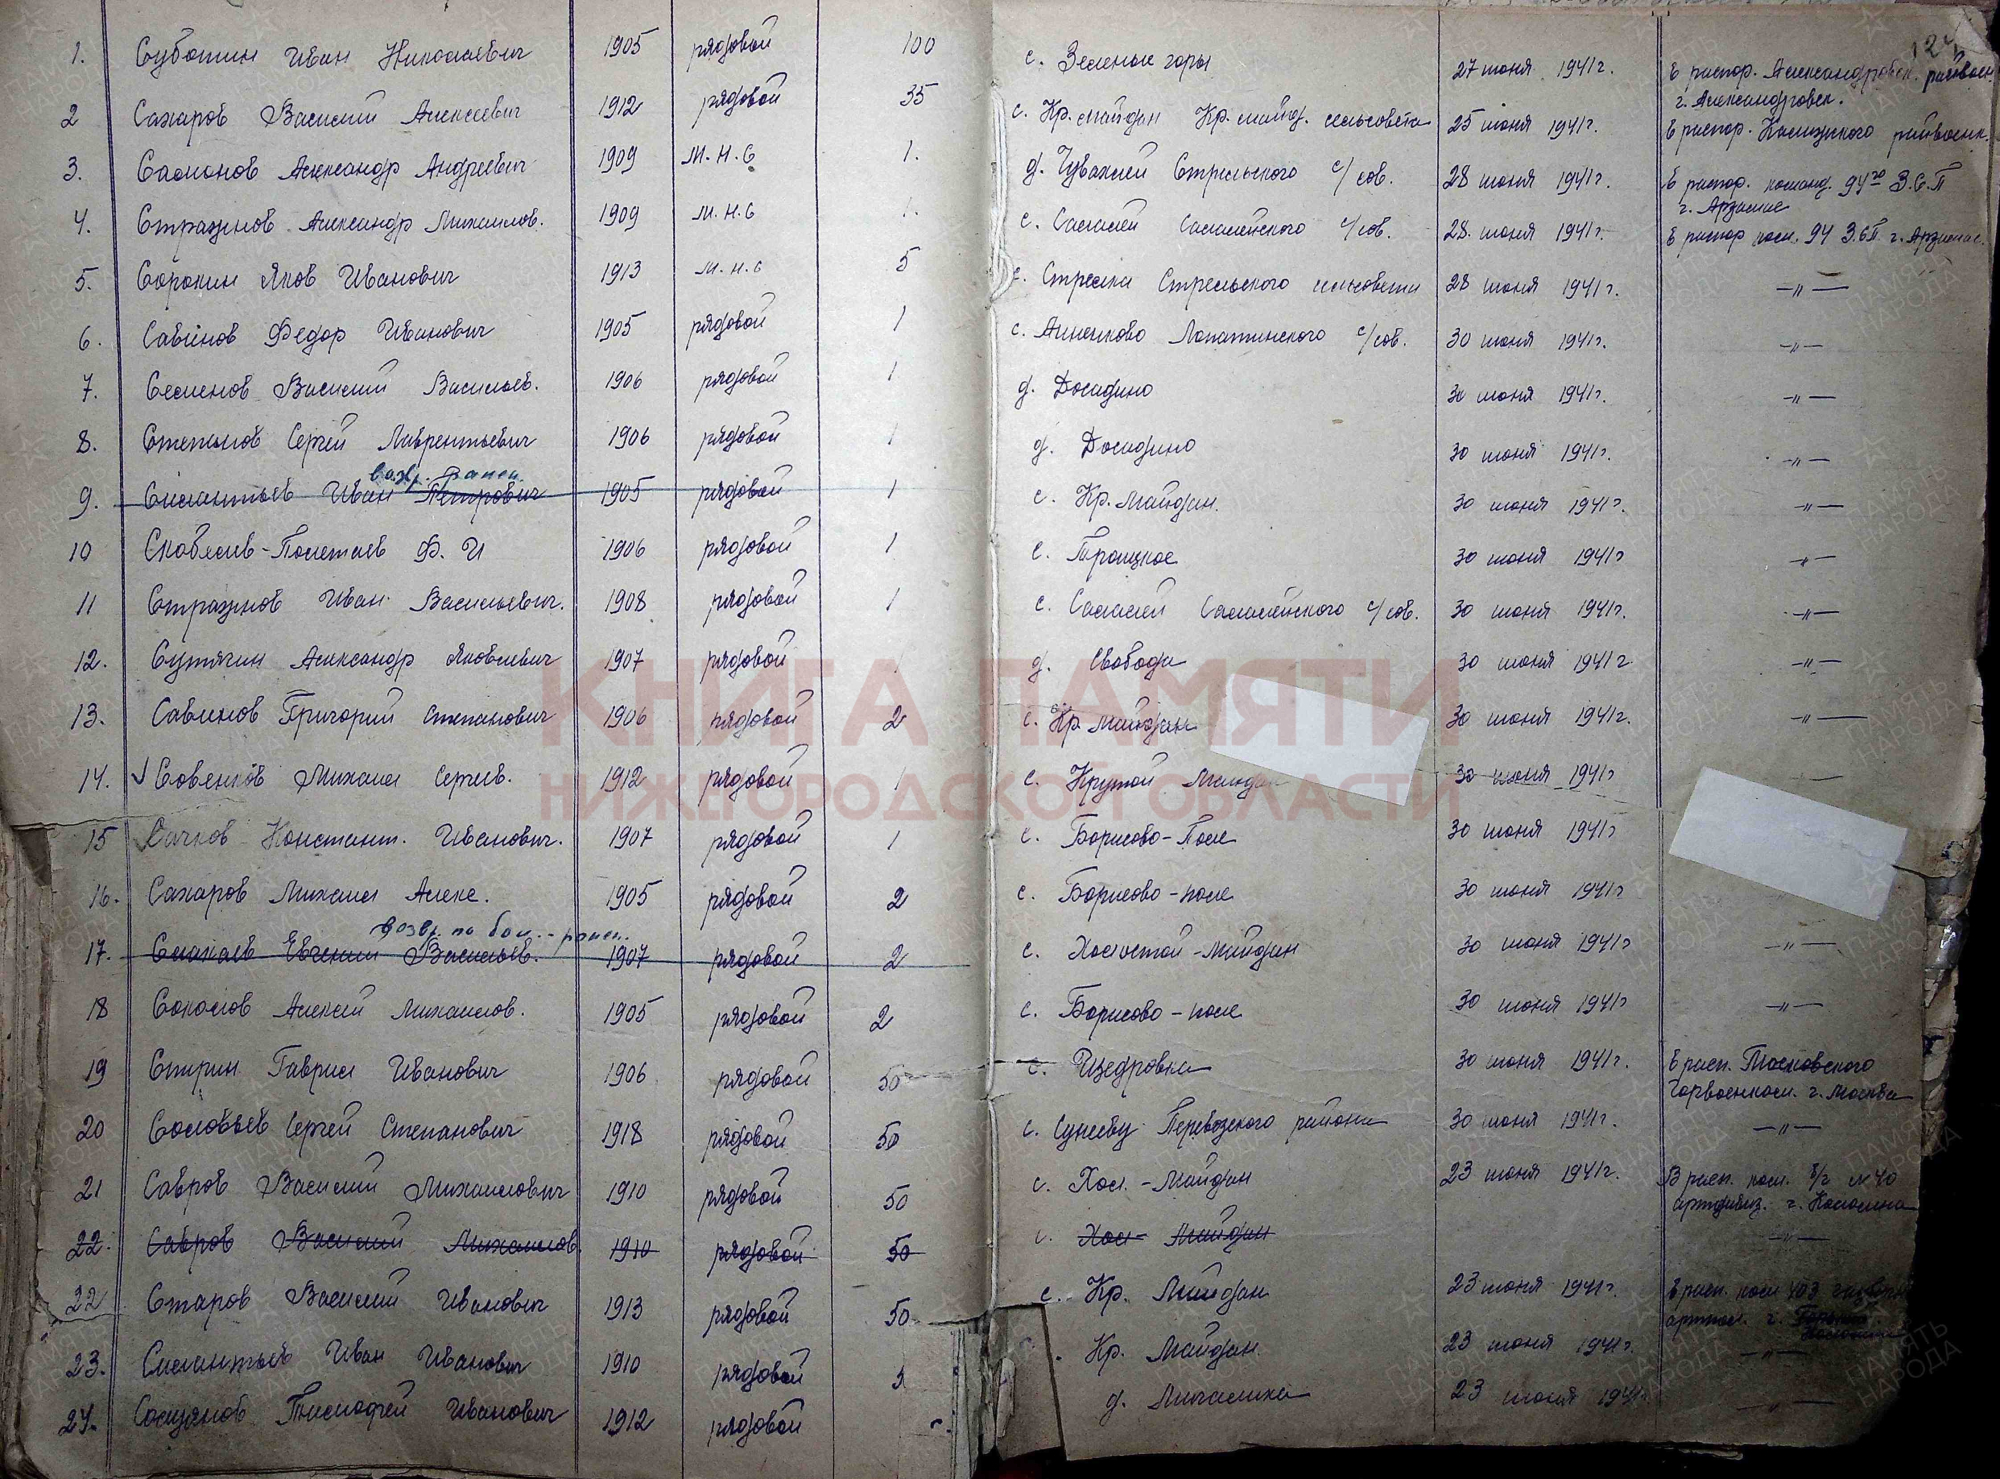 1. Суботин Иван Николаевич 1905 рядовой 100 с. Зеленые горы 27 июня 1941г. В распор. Александровск. райвоен.
г. Александровск.
2 Сахаров Василий Алексеевич 1912 рядовой 35 с. Кр. майдан Кр. майд. сельсовета 25 июня 1941г. В распор. райвоенк.
3. Самонов Александр Андреевич 1909 м.н.с 1. д. Чувахлей Стрельского с/сов. 28 июня 1941г. В распор. команд. 94го З.С.П
г. Арзамас
4. Стражнов Александр Михайлов. 1909 м.н.с 1. с. Салалей Салалейского с/сов. 28. июня 1941г. В распор ком. 94 З.С.П. г. Арзамас.
5. Сорокин Яков Иванович 1913 м.н.с 5 с. Стрелка Стрельского сельсовета 28 июня 1941г. —〃—
6. Савинов Федор Иванович 1905 рядовой 1 с. Анненково Лопатинского с/сов. 30 июня 1941г. —〃—
7. Семенов Василий Васильев. 1906 рядовой 1 д. Досадино 30 июня 1941г. —〃—
8. Степанов Сергей Лаврентьевич 1906 рядовой 1 д. Досадино 30 июня 1941г. —〃—
возвр. ранен.
9. Силантьев Иван Петрович 1905 рядовой 1 с. Кр. Майдан. 30 июня 1941г. —〃—
10 Скобелев-Полетаев Ф. И 1906 рядовой 1 с. Троицкое 30 июня 1941г —〃—
11 Стражнов Иван Васильевич. 1908 рядовой 1 с. Салалей Салалейского с/сов. 30 июня 1941г. —〃—
12. Сутягин Александр Яковлевич 1907 рядовой д. Свобода 30 июня 1941г —〃—
13. Савинов Григорий Степанович 1906 рядовой 2 с. Кр. Майдан 30 июня 1941г. —〃—
КНИГА ПАМЯТИ
14. Совенков Михаил Сергеев. 1912 рядовой 1 с. Крутой Майдан 30 июня 1941г
НИЖЕГОРОДСКОЙ ОБЛАСТИ
15 Сачков Константин. Иванович. 1907 рядовой 1 с. Борисово-Поле 30 июня 1941г
16. Сахаров Михаил Алекс. 1905 рядовой 2 с. Борисово-поле 30 июня 1941г
возвр. по бол. - ранен.
17. Евгений Васильев. 1907 рядовой 2 с. Холостой-Майдан 30 июня 1941г —〃—
18 Соколов Алексей Михайлов. 1905 рядовой 2 с. Борисово-поле 30 июня 1941г —〃—
19 Спирин Гаврил Иванович 1906 рядовой 50 с. Щедровка 30 июня 1941г. В расп. Московского
горвоенком. г. Москва
20 Соловьев Сергей Степанович 1918 рядовой 50 с. Перевозского района 30 июня 1941г. —〃—
21 Савров Василий Михайлович 1910 рядовой 50 с. Хол.-Майдан 23 июня 1941г. В расп. ком. в/г №40
артдивиз. г. Коломна
22. Савров Василий Михайлов. 1910 рядовой 50 с. Хол-Майдан —〃—
22 Старов Василий Иванович 1913 рядовой 50 с. Кр. Майдан 23 июня 1941г. В расп. ком 403
артпол. г.
23. Силантьев Иван Иванович 1910 рядовой 3 Кр. Майдан. 23 июня 1941г. —〃—
24. Тимофей Иванович 1912 рядовой д. 23 июня 1941г. —〃—
ПАМЯТЬ НАРОДА